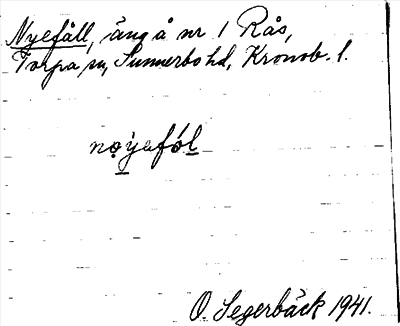 Nyefåll, äng å nr 1 Rås,
Torpa sn, Sunnerbo hd, Kronob. l.
nọyafól
O. Segerbäck 1941.